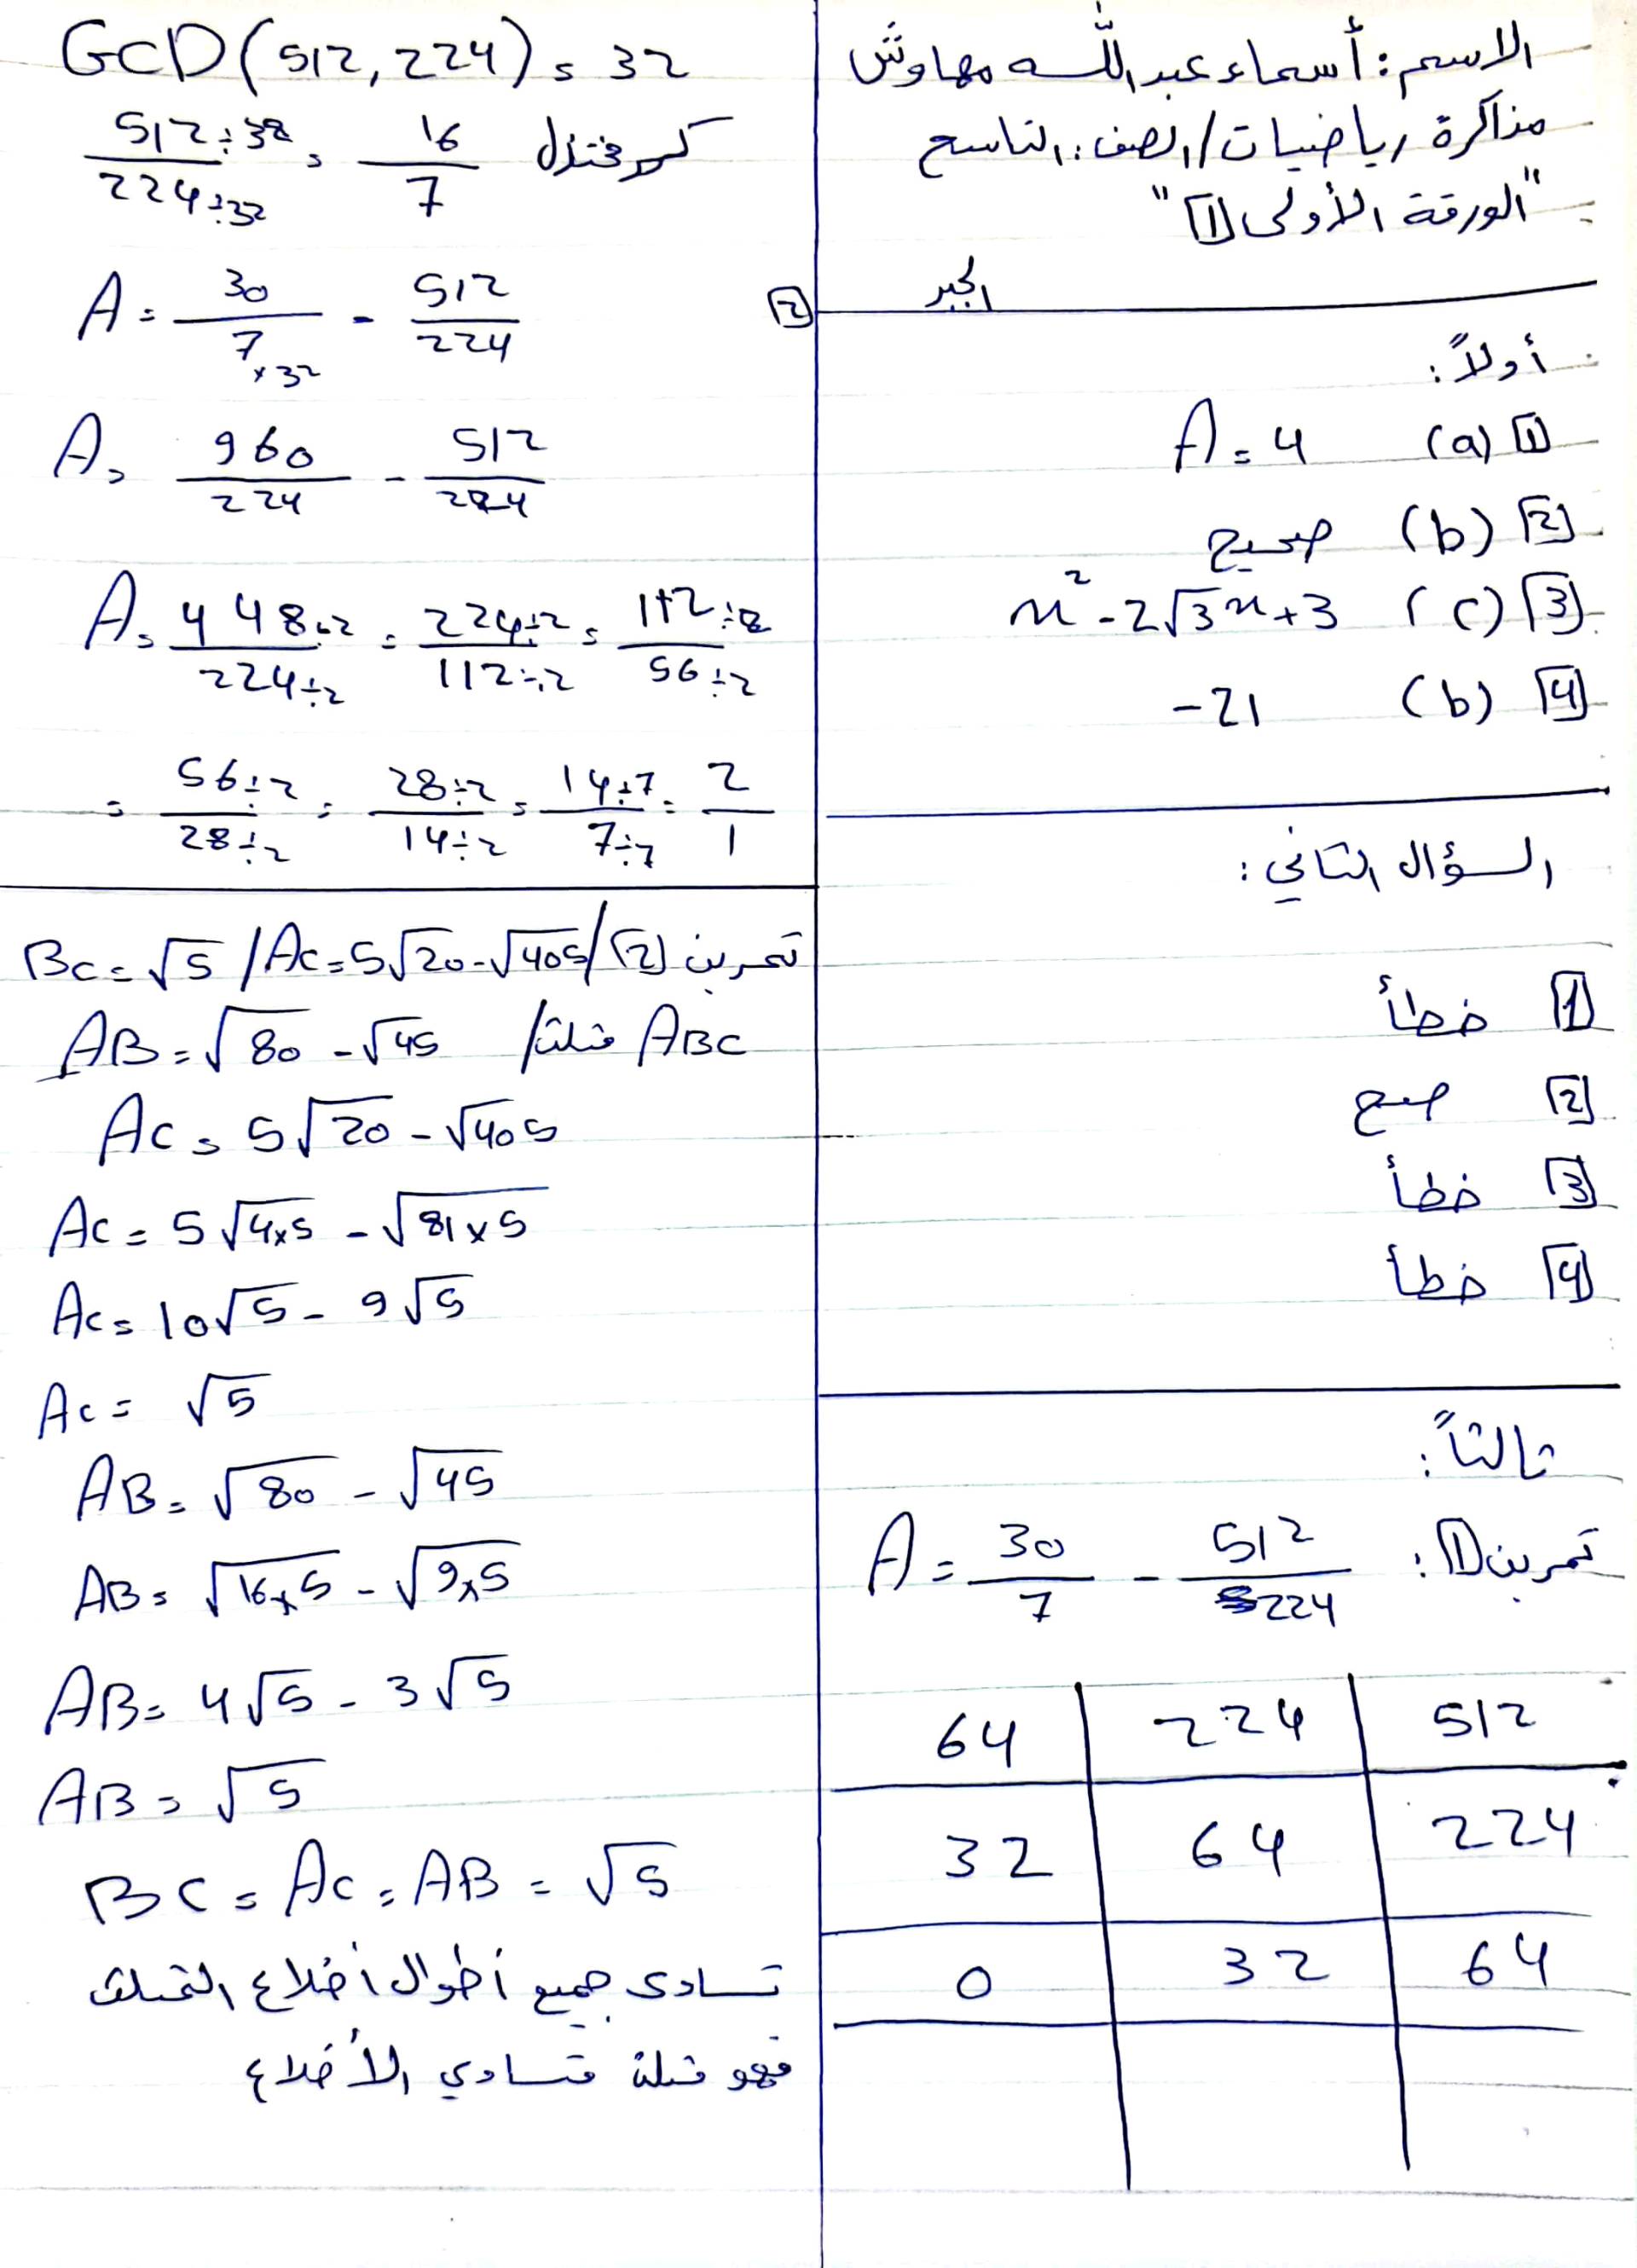 الاسم: أسماء عبد الله مهاوش
مذاكرة رياضيات / الصف: التاسع
"الورقة الأولى [1]"
الجبر
أولاً:
[1] (a) A = 4
[2] (b) صحيح
[3] (c) x² - 2√3x + 3
[4] (b) -21
السؤال الثاني:
[1] خطأ
[2] صح
[3] خطأ
[4] خطأ
ثالثاً:
تمرين [1]: A = 30/7 - 512/224
512 | 224 | 64
224 | 64 | 32
64 | 32 | 0
GCD(512, 224) = 32
512÷32/224÷32 = 16/7 كسر مختزل
[2] A = 30/7×32 - 512/224
A = 960/224 - 512/224
A = 448÷2/224÷2 = 224÷2/112÷2 = 112÷2/56÷2
= 56÷2/28÷2 = 28÷2/14÷2 = 14÷7/7÷7 = 2/1
تمرين [2] / AC = 5√20 - √405 / BC = √5
ABC مثلث / AB = √80 - √45
AC = 5√20 - √405
AC = 5√4×5 - √81×5
AC = 10√5 - 9√5
AC = √5
AB = √80 - √45
AB = √16×5 - √9×5
AB = 4√5 - 3√5
AB = √5
BC = AC = AB = √5
تساوى جميع أطوال أضلاع المثلث
فهو مثلث متساوي الأضلاع